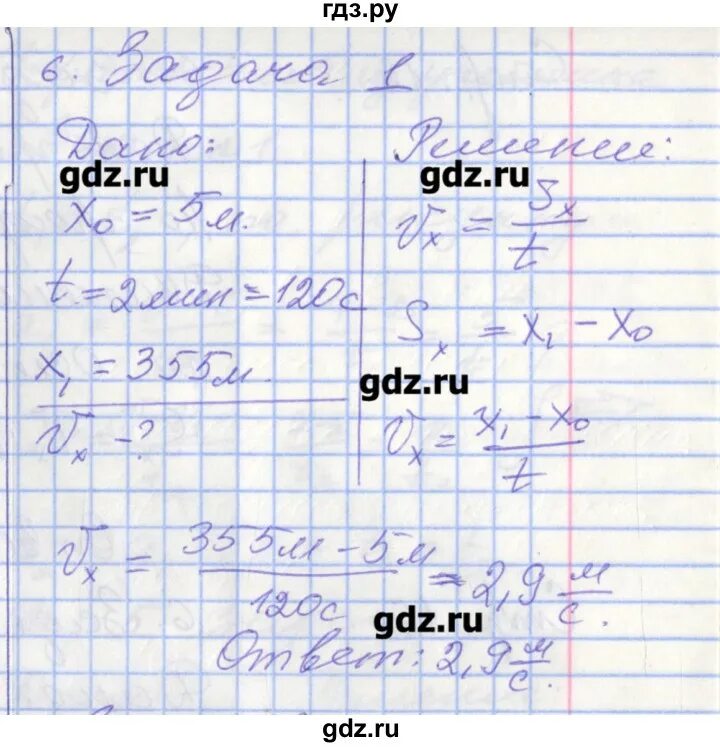 гдз.ру
6. Задача 1
Дано:
gdz.ru
x₀ = 5м.
t = 2мин = 120с
x₁ = 355м.
υₓ - ?
Решение:
gdz.ru
υₓ = Sₓ / t
Sₓ = x₁ - x₀
gdz.ru
υₓ = x₁ - x₀ / t
υₓ = 355м - 5м / 120с = 2,9 м/с.
gdz.ru
Ответ: 2,9 м/с.
gdz.ru